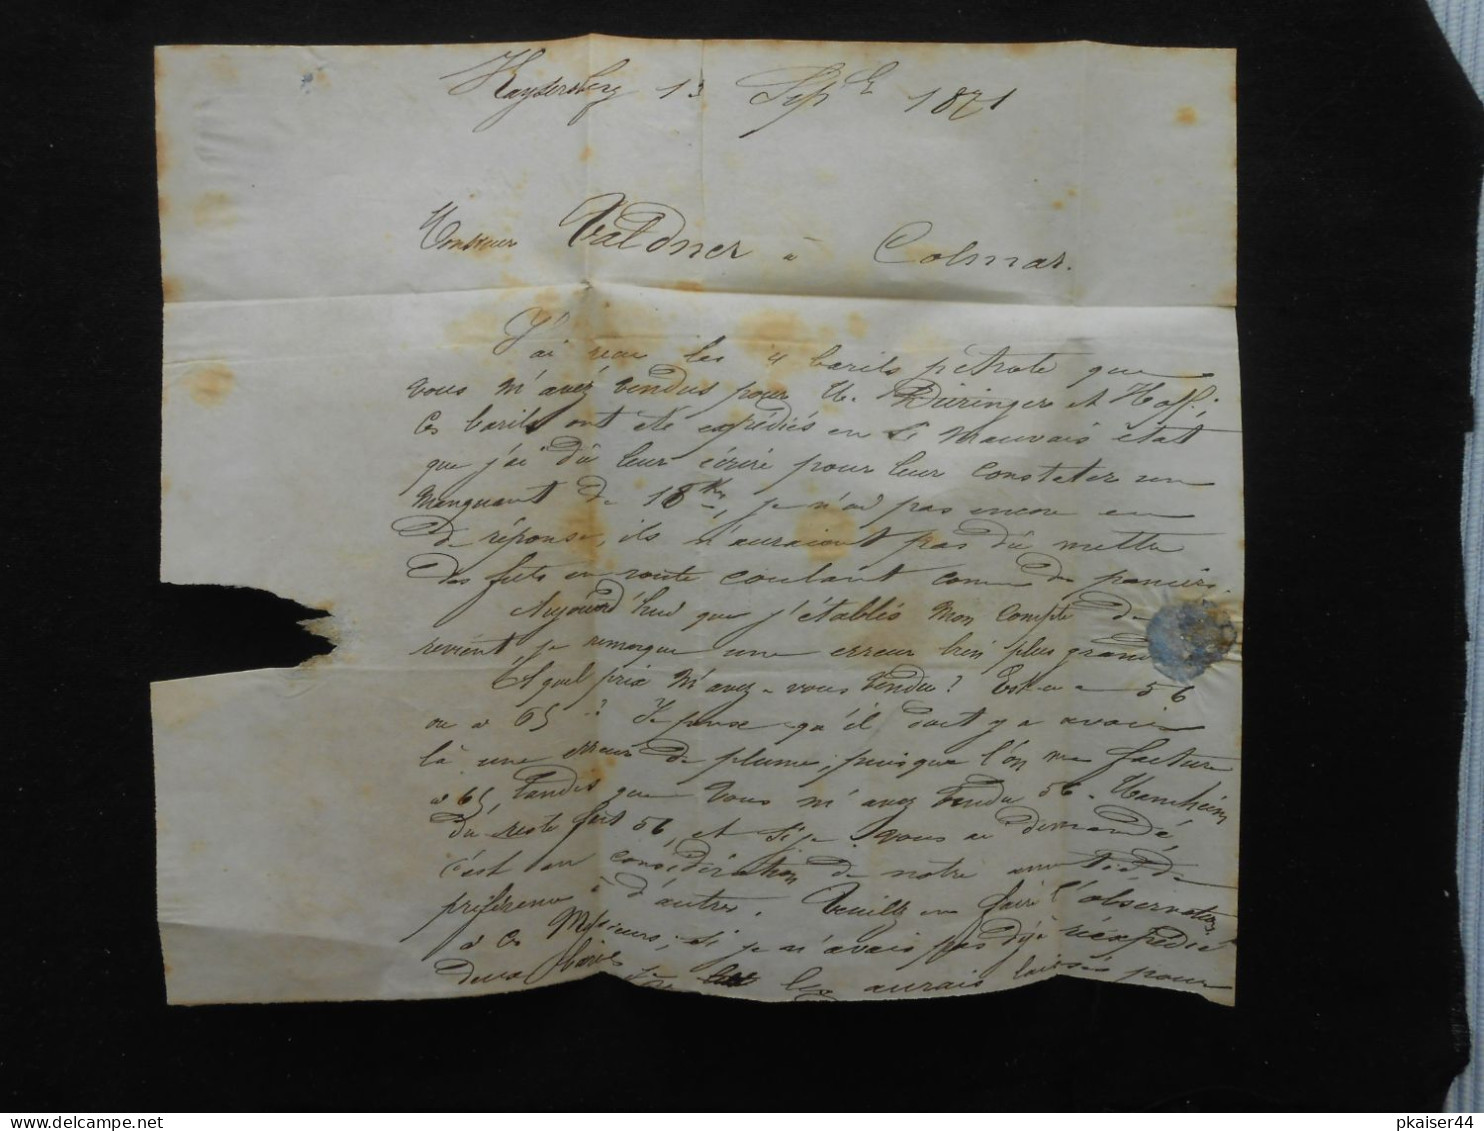 Kaysersberg 13 Sepbre 1871
Monsieur Valdner à Colmar.
J'ai reçu les 4 barils pétrole que
vous m'avez vendus pour M. Düringer et Hoff;
Ces barils ont été expédiés en si mauvais état
que j'ai dû leur écrire pour leur constater un
manquant de 18 Ks, je n'ai pas encore eu
de réponse, ils n'auraient pas dû mettre
des futs en route coulant comme des paniers.
Aujourd'hui que j'établis mon compte de
revient je remarque une erreur bien plus grande
À quel prix m'avez-vous vendu? Est-ce a 56
ou a 65-? Je pense qu'il doit y avoir
là une erreur de plume, puisque l'on me facture
a 65, tandis que vous m'avez vendu 56. Manheim
du reste fait 56, et si je vous ai demandé,
c'est en considération de notre amitié, de
préférence à d'autres. Veuillez en faire l'observation
a ces Messieurs, si je n'avais pas déjà réexpédié
deux barils je les aurais laissés pour
pkaiser44